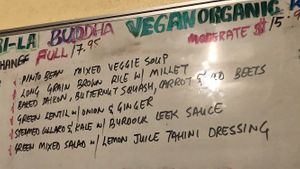 RI-LA BUDDHA VEGAN ORGANIC
CHANGE FULL/17.95 MODERATE $/15.9
PINTO BEAN MIXED VEGGIE SOUP
LONG GRAIN BROWN RICE W/ MILLET
BAKED DAIKON, BUTTERNUT SQUASH, CARROT & BEETS
GREEN LENTIL W/ ONION & GINGER
STEAMED COLLARD & KALE W/ BURDOCK LEEK SAUCE
GREEN MIXED SALAD W/ LEMON JUICE TAHINI DRESSING